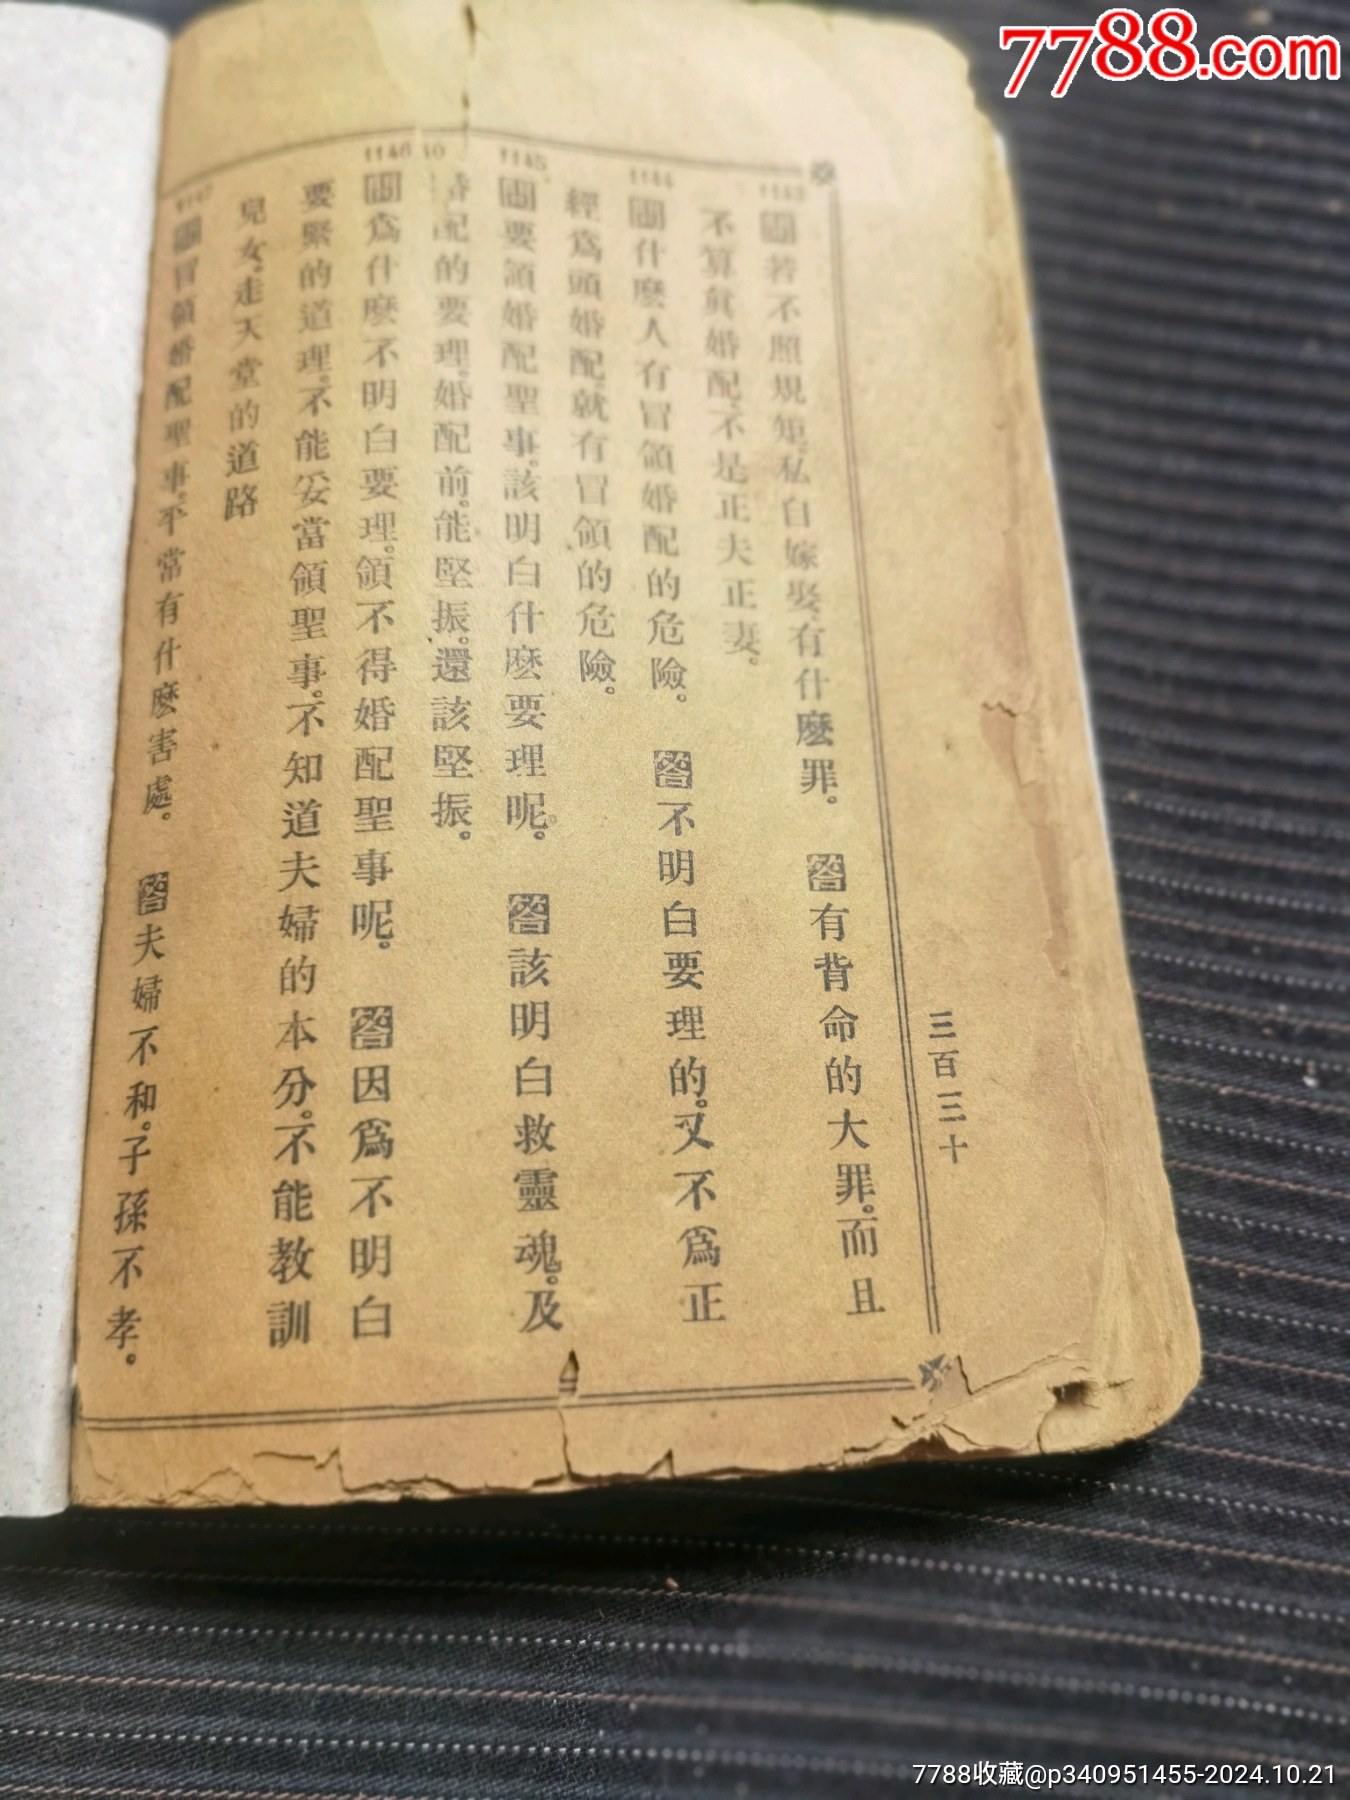 7788.com
三百三十
1143
問若不照規矩、私自嫁娶、有什麽罪。 答有背命的大罪。而且
不算眞婚配、不是正夫正妻。
1144
問什麽人有冒領婚配的危險。 答不明白要理的。又不爲正
經爲頭婚配、就有冒領的危險。
1145
問要領婚配聖事、該明白什麽要理呢。 答該明白救靈魂。及
婚配的要理。婚配前。能堅振。還該堅振。
1146
問爲什麽不明白要理。領不得婚配聖事呢。 答因爲不明白
要緊的道理。不能妥當領聖事。不知道夫婦的本分。不能教訓
兒女。走天堂的道路
1147
問冒領婚配聖事。平常有什麽害處。 答夫婦不和。子孫不孝。
7788收藏@p340951455-2024.10.21